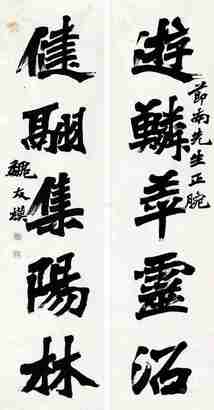 節南先生正腕
遊鱗萃靈沼
健翮集陽林
魏友棫